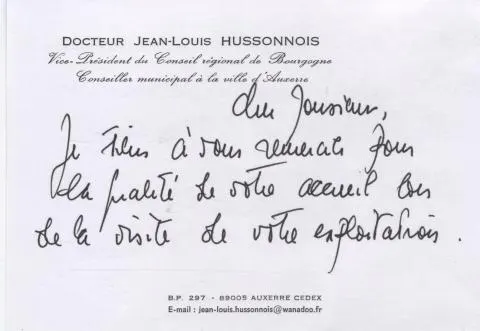 Docteur Jean-Louis HUSSONNOIS
Vice-Président du Conseil régional de Bourgogne
Conseiller municipal à la ville d'Auxerre
Cher Monsieur,
Je tiens à vous remercier pour
la qualité de votre accueil lors
de la visite de votre exploitation.
B.P. 297 - 89005 AUXERRE CEDEX
E-mail : jean-louis.hussonnois@wanadoo.fr